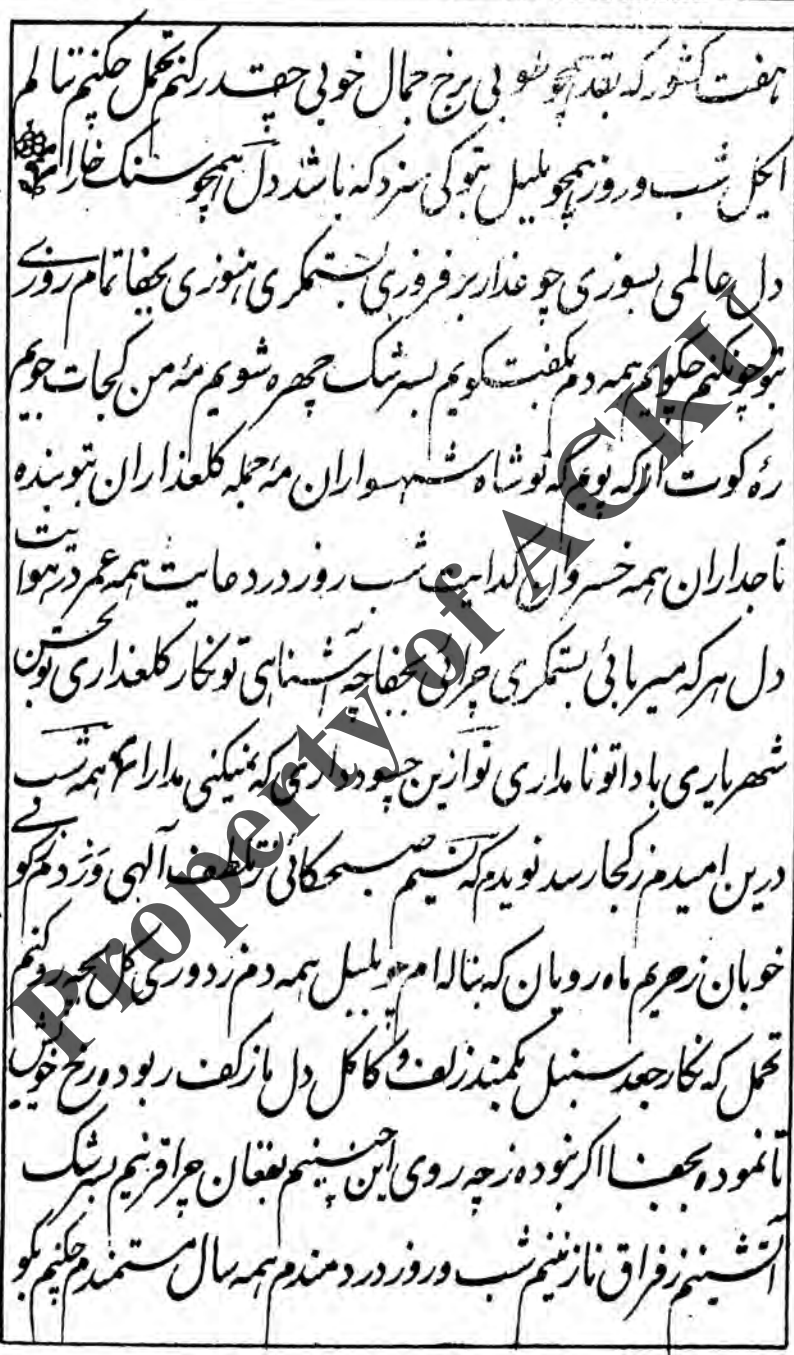 هفت کشور که بقد همچو طوبی برخ جمال خوبی چقدر کنم تحمل چکنم ننالم
ایگل شب وروز همچو بلبل بتو کی سزد که باشد دل همچو سنک خارا
دل عالمی بسوزی چو عذار بر فروزی بستمکری هنوزی بجفا تمام روزی
بتو چونکنم چکویم همه دم بکفت کویم بسرشک چهره شویم مۀ من کجات جویم
رۀ کوت از که پویم که توشاه شهسواران مۀ جمله کلعذاران بتو بنده
تاجداران همه خسروان کدایت شب روز در دعایت همه عمر در هوایت
دل هر که میربائی بستمکری چرائی بجفا چه آشنائی تو نکار کلعذاری بحسن تو
شهریاری باداتو نامداری توازین چسود داری که نمیکنی مدارا همه شب
درین امیدم ز کجا رسد نویدم که نسیم صبحکائی ز تلطف آلهی وزدم کوئی
خوبان ز حریم ماه رویان که بناله ام چو بلبل همه دم ز دوری کل بچه رو کنم
تحمل که نکار جعد سنبل بکمند زلف و کاکل دل ما ز کف ربوده رخ خویش
تا نموده بجفا اکر نبوده ز چه روی این چنینم بفغان چرا قرینم بسرشک
آتشینم ز فراق نازنینم شب وروز دردمندم همه سال مستمندم چکنم بکو
Property of ACKU